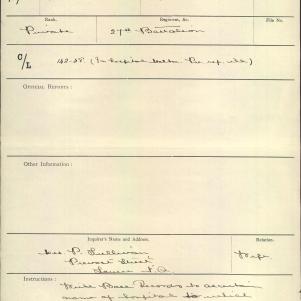 Rank. Regiment, &c. File No.
Private 27th Battalion
C/L 142-58. (In hospital Malta. Prev. rep. ill)
Official Reports :
Other Information :
Inquirer's Name and Address. Relation.
Mrs. P. Sullivan, Wife
Street,
N.Q.
Instructions : Write Base Records to ascertain
name of hospital to which